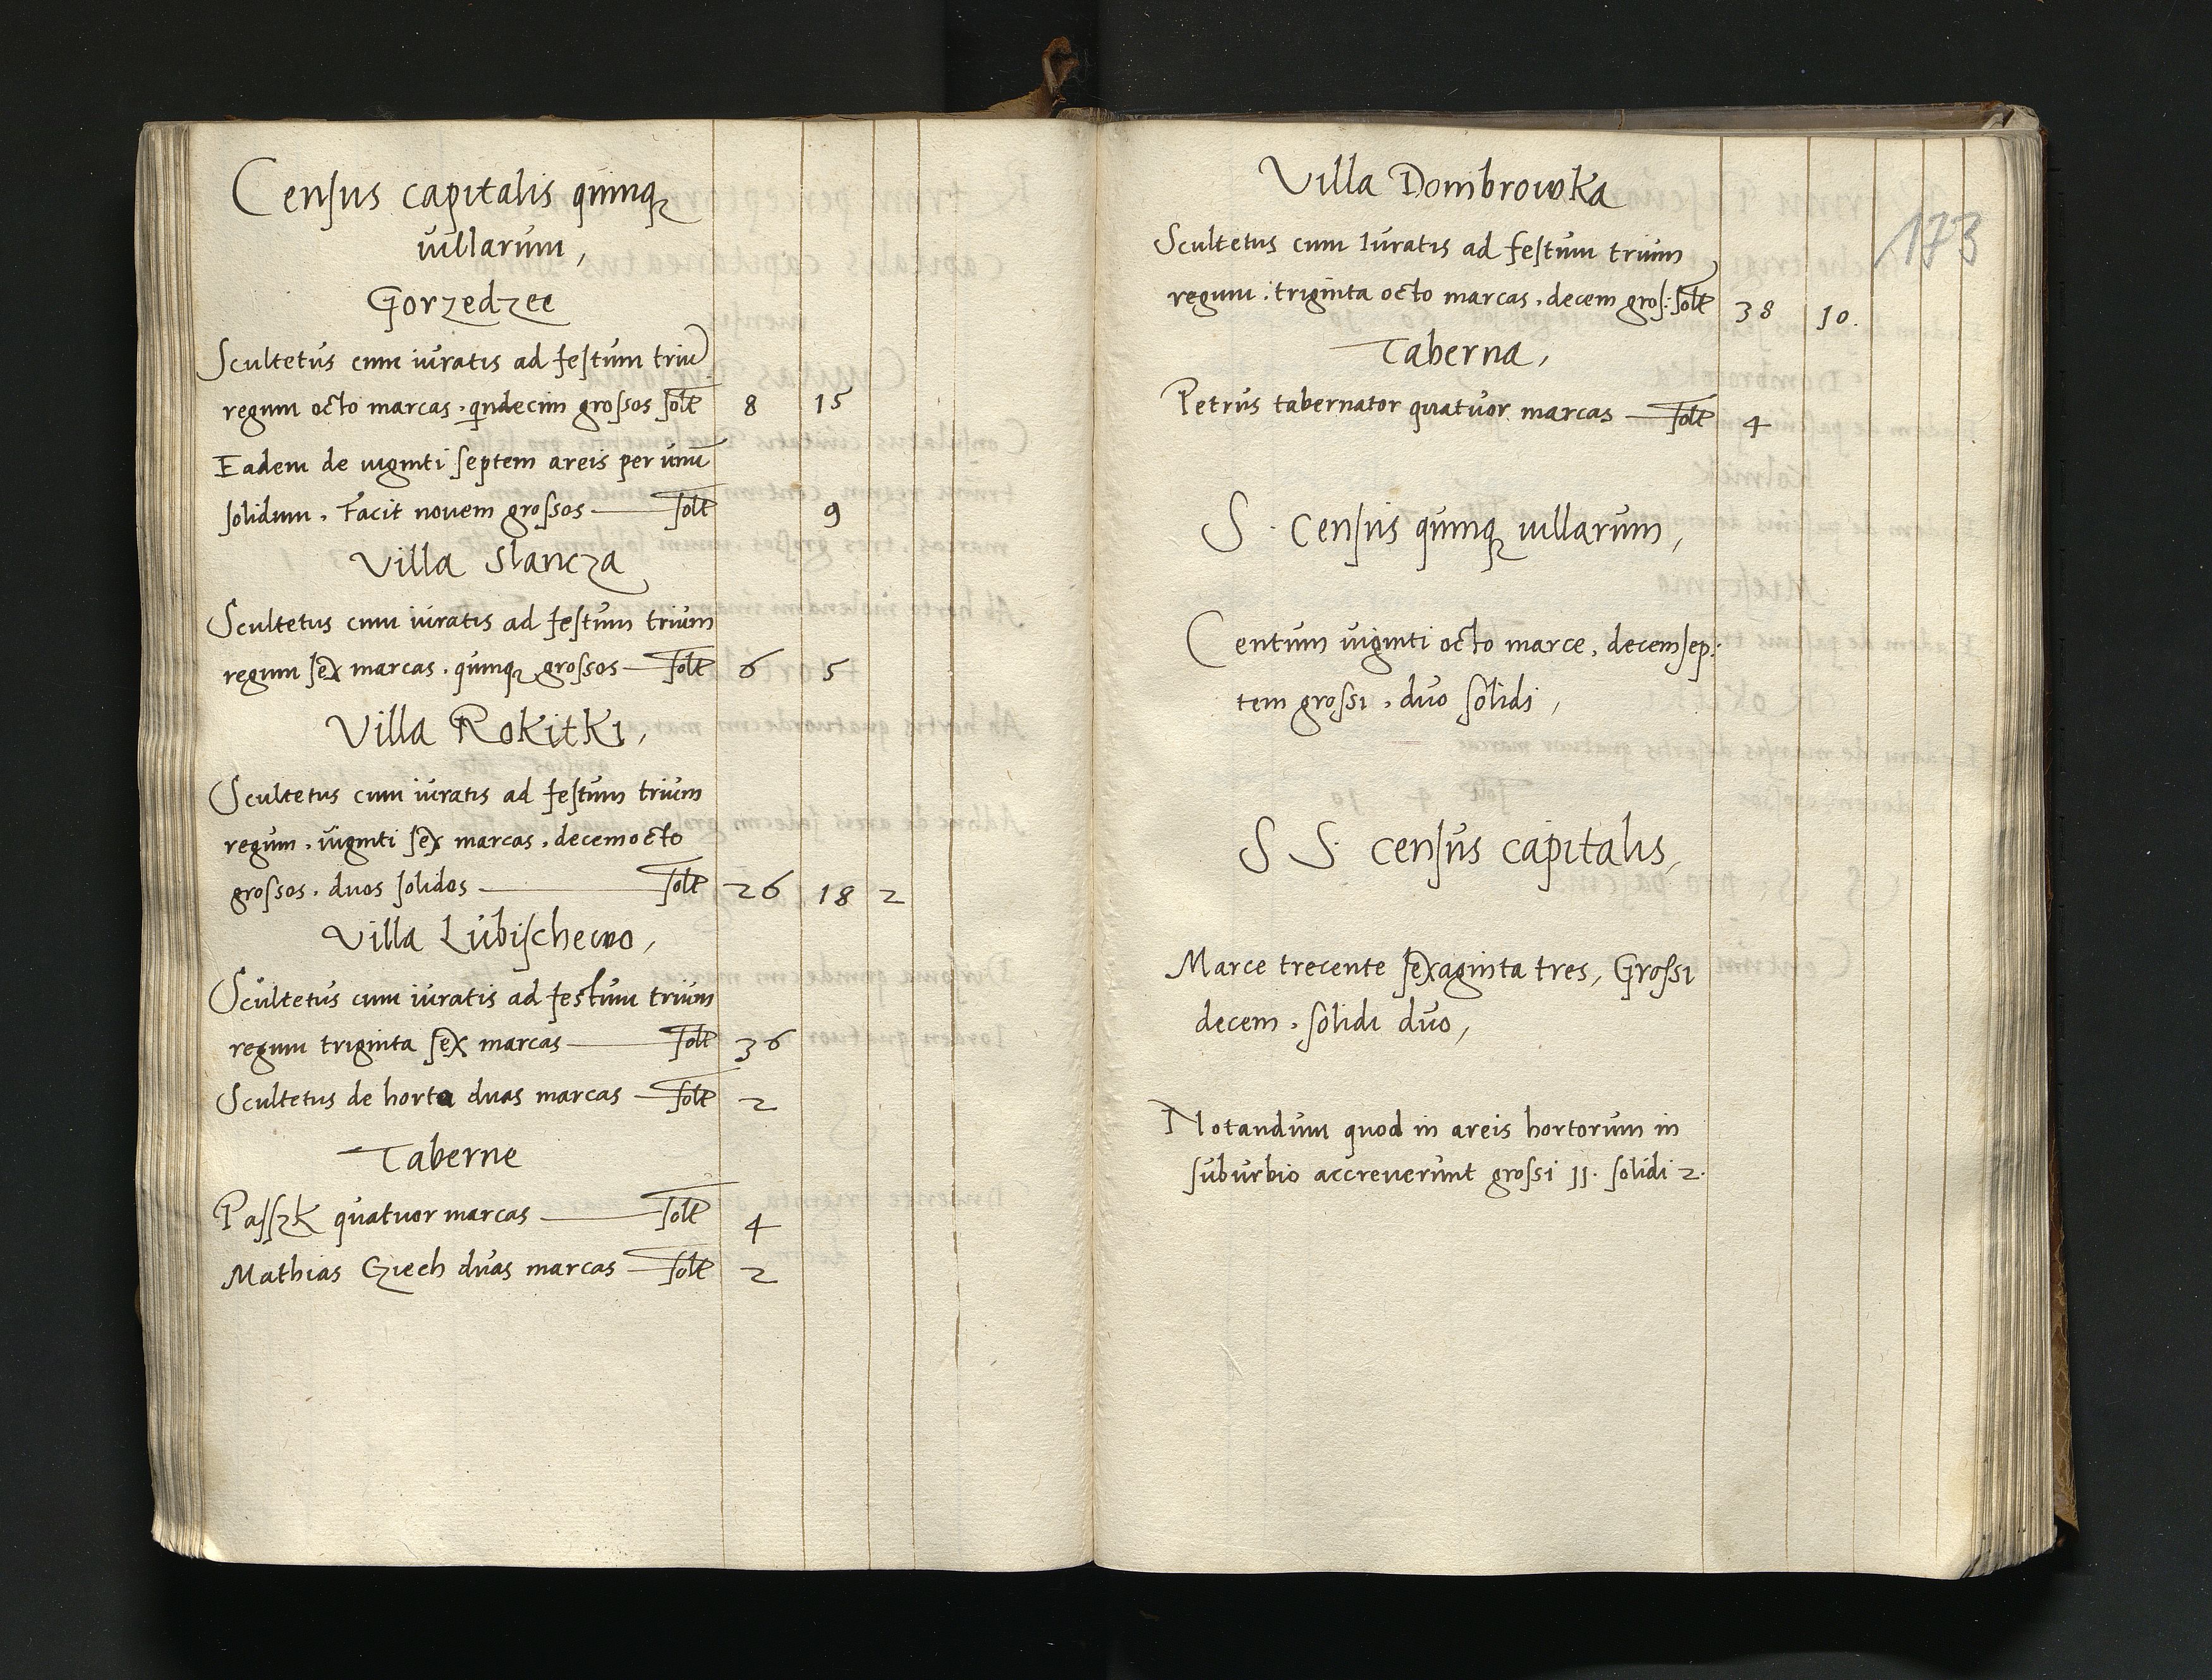 Census capitalis quinq
villarum,
Gorzedzee
Scultetus cum iuratis ad festum triu
regum octo marcas. qndecim grossos solt 8 15
Eadem de viginti septem areis per unu
solidum. Facit novem grossos solt 9
Villa Slancza
Scultetus cum iuratis ad festum trium
regum sex marcas. quinq grossos solt 6 5
Villa Rokitki,
Scultetus cum iuratis ad festum trium
regum. viginti sex marcas. decemocto
grossos. duos solidos solt 26 18 2
Villa Lubischewo,
Scultetus cum iuratis ad festum trium
regum triginta sex marcas solt 36
Scultetus de horto duas marcas solt 2
Taberne
Passzk quatuor marcas solt 4
Mathias Cziech duas marcas solt 2
Villa Dombrowka
173
Scultetus cum Iuratis ad festum trium
regum. triginta octo marcas. decem gros: solt 38 10.
Taberna,
Petrus tabernator quatuor marcas solt 4
S. Census quinq villarum,
Centum viginti octo marce, decemsep:
tem grossi. duo solidi,
S S. census capitalis,
Marce trecente sexaginta tres, Grossi
decem. solidi duo,
Notandum quod in areis hortorum in
suburbio accreverunt grossi 11. solidi 2.